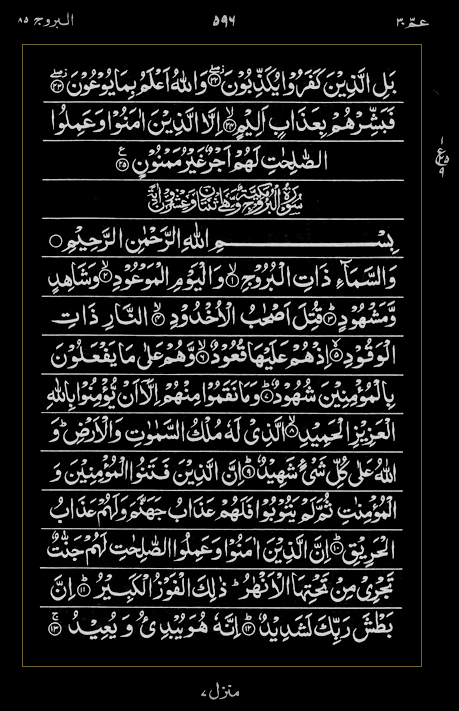 عمّ ٣٠ ٥٩٦ البروج ٨٥
بَلِ الَّذِيْنَ كَفَرُوْا يُكَذِّبُوْنَ ﴿٢٢﴾ وَاللّٰهُ اَعْلَمُ بِمَا يُوْعُوْنَ ﴿٢٣﴾
فَبَشِّرْهُمْ بِعَذَابٍ اَلِيْمٍ ﴿٢٤﴾ اِلَّا الَّذِيْنَ اٰمَنُوْا وَعَمِلُوا
الصّٰلِحٰتِ لَهُمْ اَجْرٌ غَيْرُ مَمْنُوْنٍ ﴿٢٥﴾
سُوْرَةُ الْبُرُوْجِ مَكِّيَّةٌ وَّهِيَ اثْنَتَانِ وَعِشْرُوْنَ اٰيَةً
بِسْمِ اللّٰهِ الرَّحْمٰنِ الرَّحِيْمِ
وَالسَّمَآءِ ذَاتِ الْبُرُوْجِ ﴿١﴾ وَالْيَوْمِ الْمَوْعُوْدِ ﴿٢﴾ وَشَاهِدٍ
وَّمَشْهُوْدٍ ﴿٣﴾ قُتِلَ اَصْحٰبُ الْاُخْدُوْدِ ﴿٤﴾ النَّارِ ذَاتِ
الْوَقُوْدِ ﴿٥﴾ اِذْ هُمْ عَلَيْهَا قُعُوْدٌ ﴿٦﴾ وَّهُمْ عَلٰى مَا يَفْعَلُوْنَ
بِالْمُؤْمِنِيْنَ شُهُوْدٌ ﴿٧﴾ وَمَا نَقَمُوْا مِنْهُمْ اِلَّا اَنْ يُّؤْمِنُوْا بِاللّٰهِ
الْعَزِيْزِ الْحَمِيْدِ ﴿٨﴾ الَّذِيْ لَهٗ مُلْكُ السَّمٰوٰتِ وَالْاَرْضِ ؕ وَ
اللّٰهُ عَلٰى كُلِّ شَيْءٍ شَهِيْدٌ ﴿٩﴾ اِنَّ الَّذِيْنَ فَتَنُوا الْمُؤْمِنِيْنَ وَ
الْمُؤْمِنٰتِ ثُمَّ لَمْ يَتُوْبُوْا فَلَهُمْ عَذَابُ جَهَنَّمَ وَلَهُمْ عَذَابُ
الْحَرِيْقِ ﴿١٠﴾ اِنَّ الَّذِيْنَ اٰمَنُوْا وَعَمِلُوا الصّٰلِحٰتِ لَهُمْ جَنّٰتٌ
تَجْرِيْ مِنْ تَحْتِهَا الْاَنْهٰرُ ؕ ذٰلِكَ الْفَوْزُ الْكَبِيْرُ ﴿١١﴾ اِنَّ
بَطْشَ رَبِّكَ لَشَدِيْدٌ ﴿١٢﴾ اِنَّهٗ هُوَ يُبْدِئُ وَيُعِيْدُ ﴿١٣﴾
منزل ٧